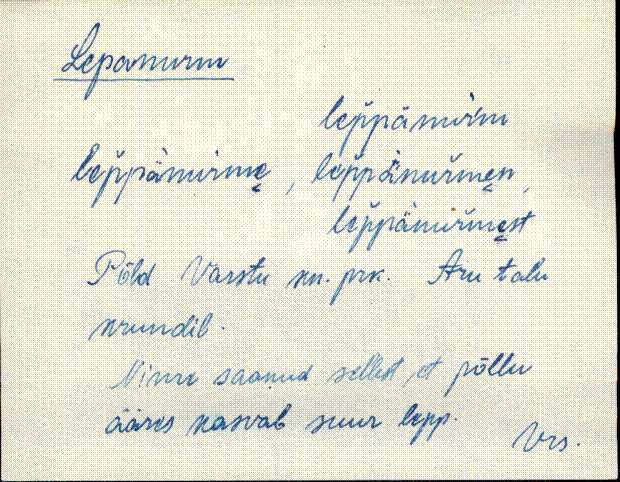 Lepanurm
lep̆pänurm
lep̆pänurmẹ, lep̆pänurmẹn,
lep̆pänurmẹst
Põld Varstu kn. prk. Aru talu
krundil.
Nime saanud sellest, et põllu
ääres kasvab suur lepp.
Vrs.